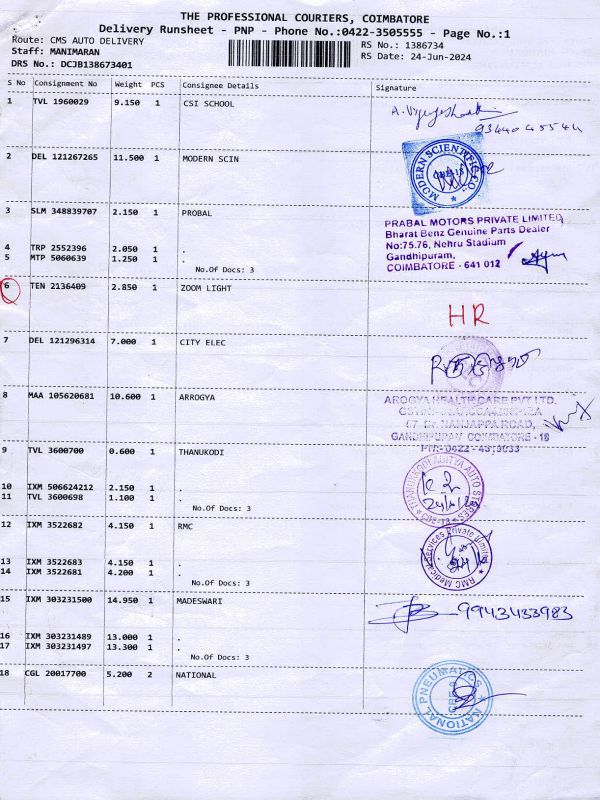 THE PROFESSIONAL COURIERS, COIMBATORE
Delivery Runsheet - PNP - Phone No.:0422-3505555 - Page No.:1
Route: CMS AUTO DELIVERY
RS No.: 1386734
Staff: MANIMARAN
RS Date: 24-Jun-2024
DRS No.: DCJB138673401
S No Consignment No Weight PCS Consignee Details Signature
1 TVL 1960029 9.150 1 CSI SCHOOL
2 DEL 121267265 11.500 1 MODERN SCIN
MODERN SCIENTIFIC CO.
3 SLM 348839707 2.150 1 PROBAL
PRABAL MOTORS PRIVATE LIMITED
Bharat Benz Genuine Parts Dealer
No:75.76, Nehru Stadium
Gandhipuram,
COIMBATORE - 641 012
4 TRP 2552396 2.050 1 .
5 MTP 5060639 1.250 1 .
No.Of Docs: 3
6 TEN 2136409 2.850 1 ZOOM LIGHT
HR
7 DEL 121296314 7.000 1 CITY ELEC
8 MAA 105620681 10.600 1 ARROGYA
AROGYA HEALTH CARE PVT LTD.
NANJAPPA ROAD,
GANDHIPURAM COIMBATORE - 18
9 TVL 3600700 0.600 1 THANUKODI
10 IXM 506624212 2.150 1 .
11 TVL 3600698 1.100 1 .
No.Of Docs: 3
ADITYA AUTO STORES
12 IXM 3522682 4.150 1 RMC
RMC Medical Services Private Limited
13 IXM 3522683 4.150 1 .
14 IXM 3522681 4.200 1 .
No.Of Docs: 3
15 IXM 303231500 14.950 1 MADESWARI
9943433983
16 IXM 303231489 13.000 1 .
17 IXM 303231497 13.300 1 .
No.Of Docs: 3
18 CGL 20017700 5.200 2 NATIONAL
NATIONAL PNEUMATICS